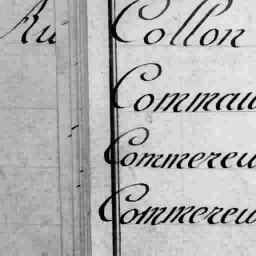 Au Collon
Commau
Commereu
Commereu